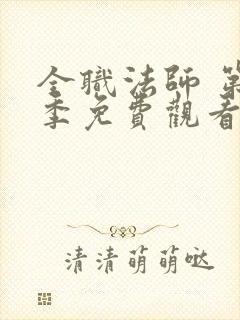 全職法師 第
季免費觀看
清清萌萌哒